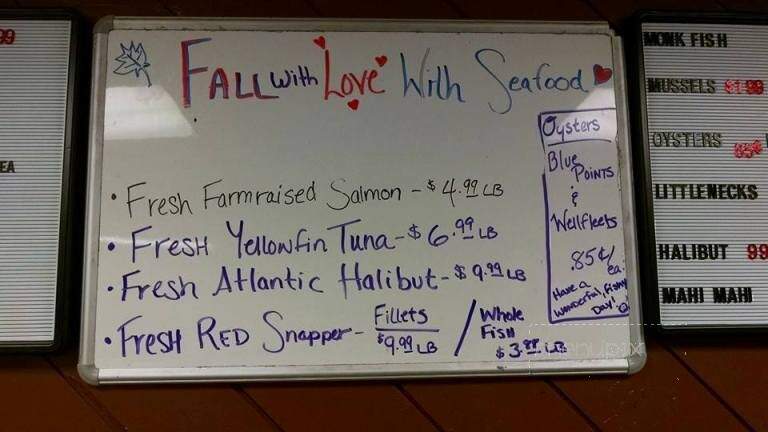 99
EA
Fall with Love With Seafood
• Fresh Farmraised Salmon - $4.99 LB
• Fresh Yellowfin Tuna - $6.99 LB
• Fresh Atlantic Halibut - $9.99 LB
• Fresh Red Snapper - Fillets $9.99 LB / Whole Fish
Oysters
Blue Points
&
Wellfleets
.85¢/ea.
Have a
wonderful, Fishy
Day!
MONK FISH
MUSSELS $1.99
OYSTERS 85¢
LITTLENECKS
HALIBUT 99
MAHI MAHI